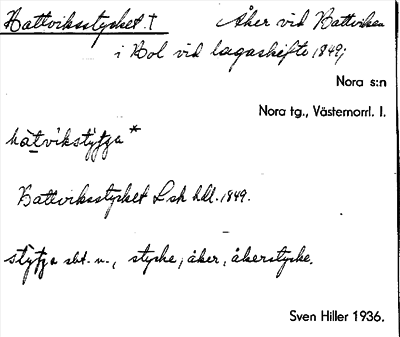 Battviksstycket. † Åker vid Battviken
i Bol vid lagaskifte 1849;
Nora s:n
Nora tg., Västernorrl. l.
Battviksstycket L.sk. hdl. 1849.
sbt. n., stycke, åker, åkerstycke.
Sven Hiller 1936.